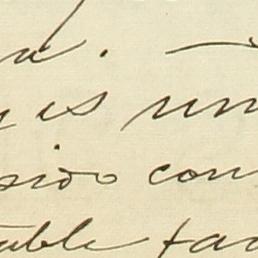 a.
is un
sido con
table fac